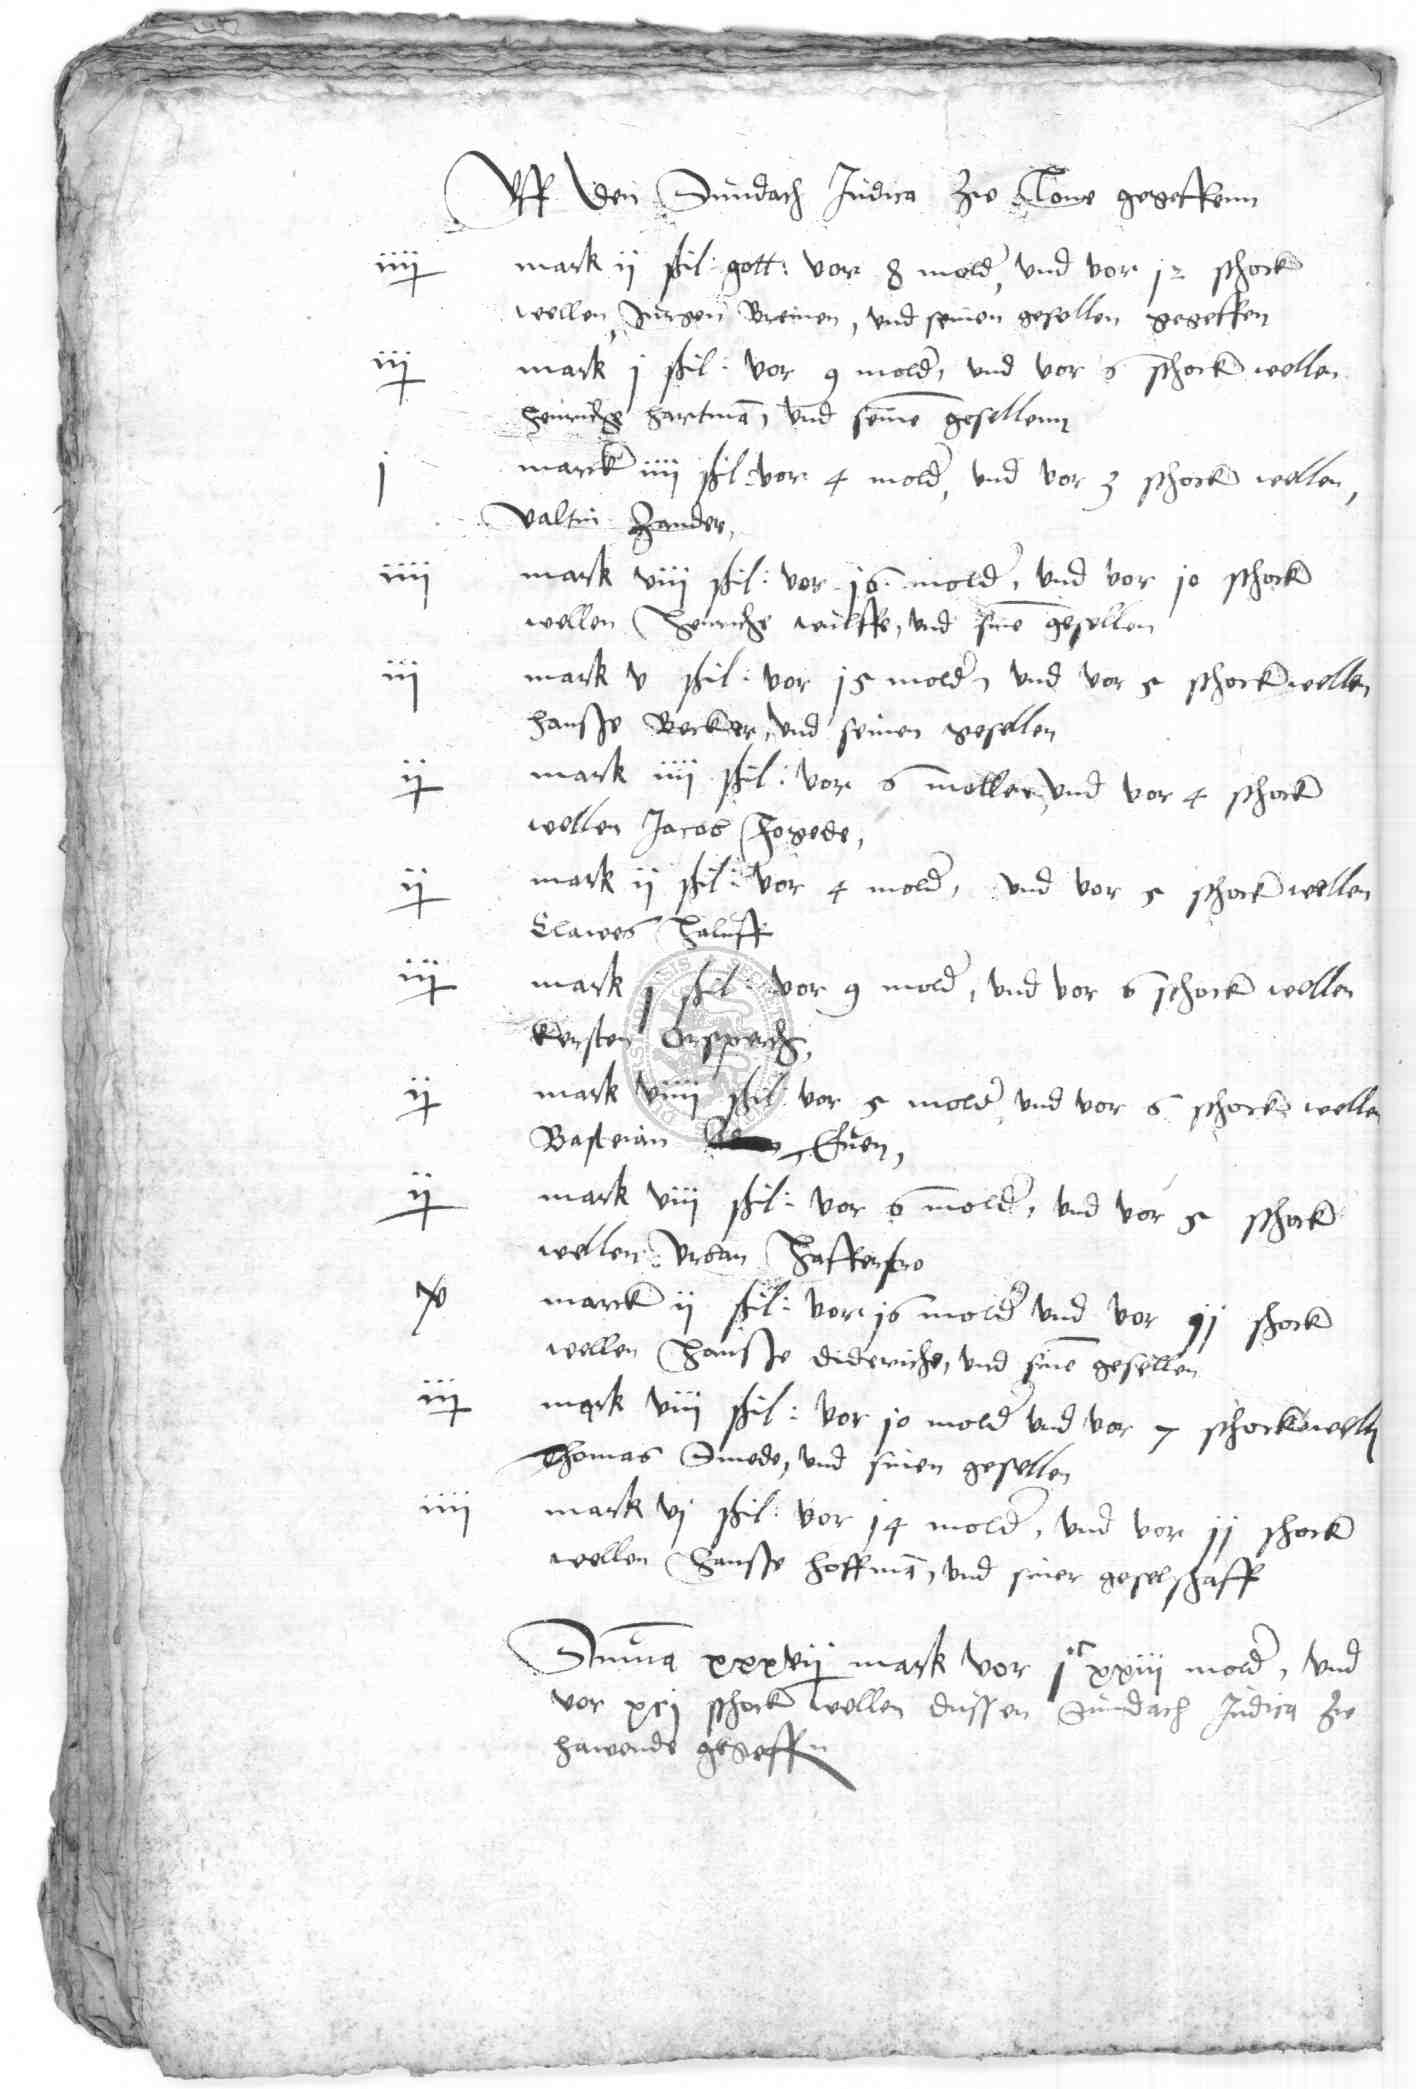 Uff den Sundach Judica zce Lone gegeffenn
iiii mark ii ßil: gott: vor 8 mold, und vor 12 schock
wellen, Jurgen Bremen, und seinen gesellen gegeffen
iii mark j ßil: vor 9 mold, und vor 6 schock wellen
Henriche Hartman, und seine gesellenn
j marck iiii ßil: vor 4 mold, und vor 3 schock wellen,
Valtin Zander,
iiii mark viii ßil: vor 16 mold, und vor 10 schock
wellen Henriche wulffe, und sine gesellen
iii mark v ßil: vor 15 mold, und vor 5 schock wellen
Hanße Becker, und seinen gesellen
ii mark iiii ßil: vor 6 molder, und vor 4 schock
wellen Jacob Fogede,
ii mark ii ßil: vor 4 mold, und vor 5 schock wellen
Clawes Haluff
iii mark j ßil: vor 9 mold, und vor 6 schock wellen
Kersten
ii mark viiii ßil: vor 5 mold, und vor 6 schock wellen
Basteian
ii mark viii ßil: vor 6 mold, und vor 5 schock
wellen Urban
v marck ii ßil: vor 16 mold und vor 11 schock
wellen Hanße Dideriche, und sine gesellen
iii mark viii ßil: vor 10 mold und vor 7 schock wellen
Thomas Smede, und sinen gesellen
iiii mark vj ßil: vor 14 mold, und vor 11 schock
wellen Hanße Hoffman, und siner geselschaff
Summa xxxvii mark vor jc xxiii mold, und
vor xcj schock wellen dussen Sundach Judica zce
hawende gegeffn